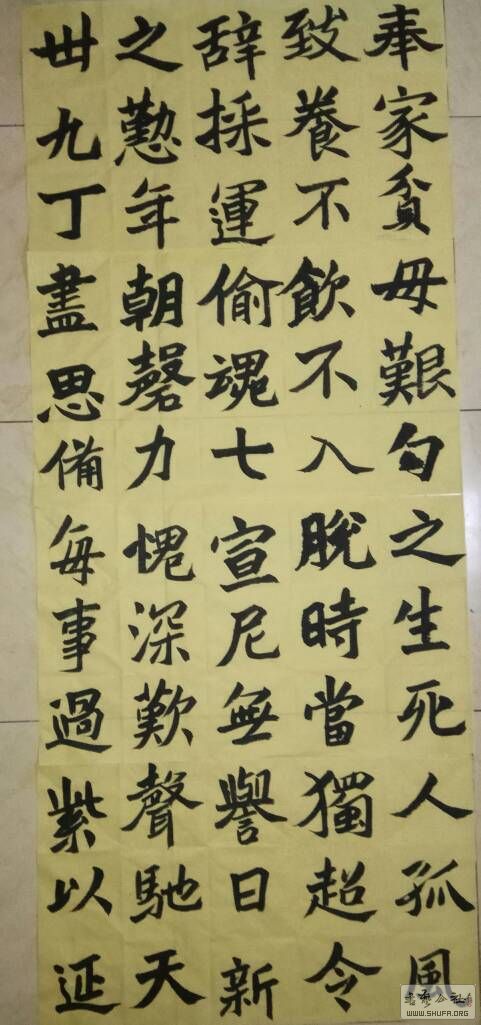 奉家貧母艱勾之生死人孤風
致養不飲不入脫時當獨超令
辞採運偷魂七宣尼無譽日新
之懃年朝罄力愧深歎聲馳天
丗九丁盡思備每事過紫以延
WWW.SHUFA.ORG